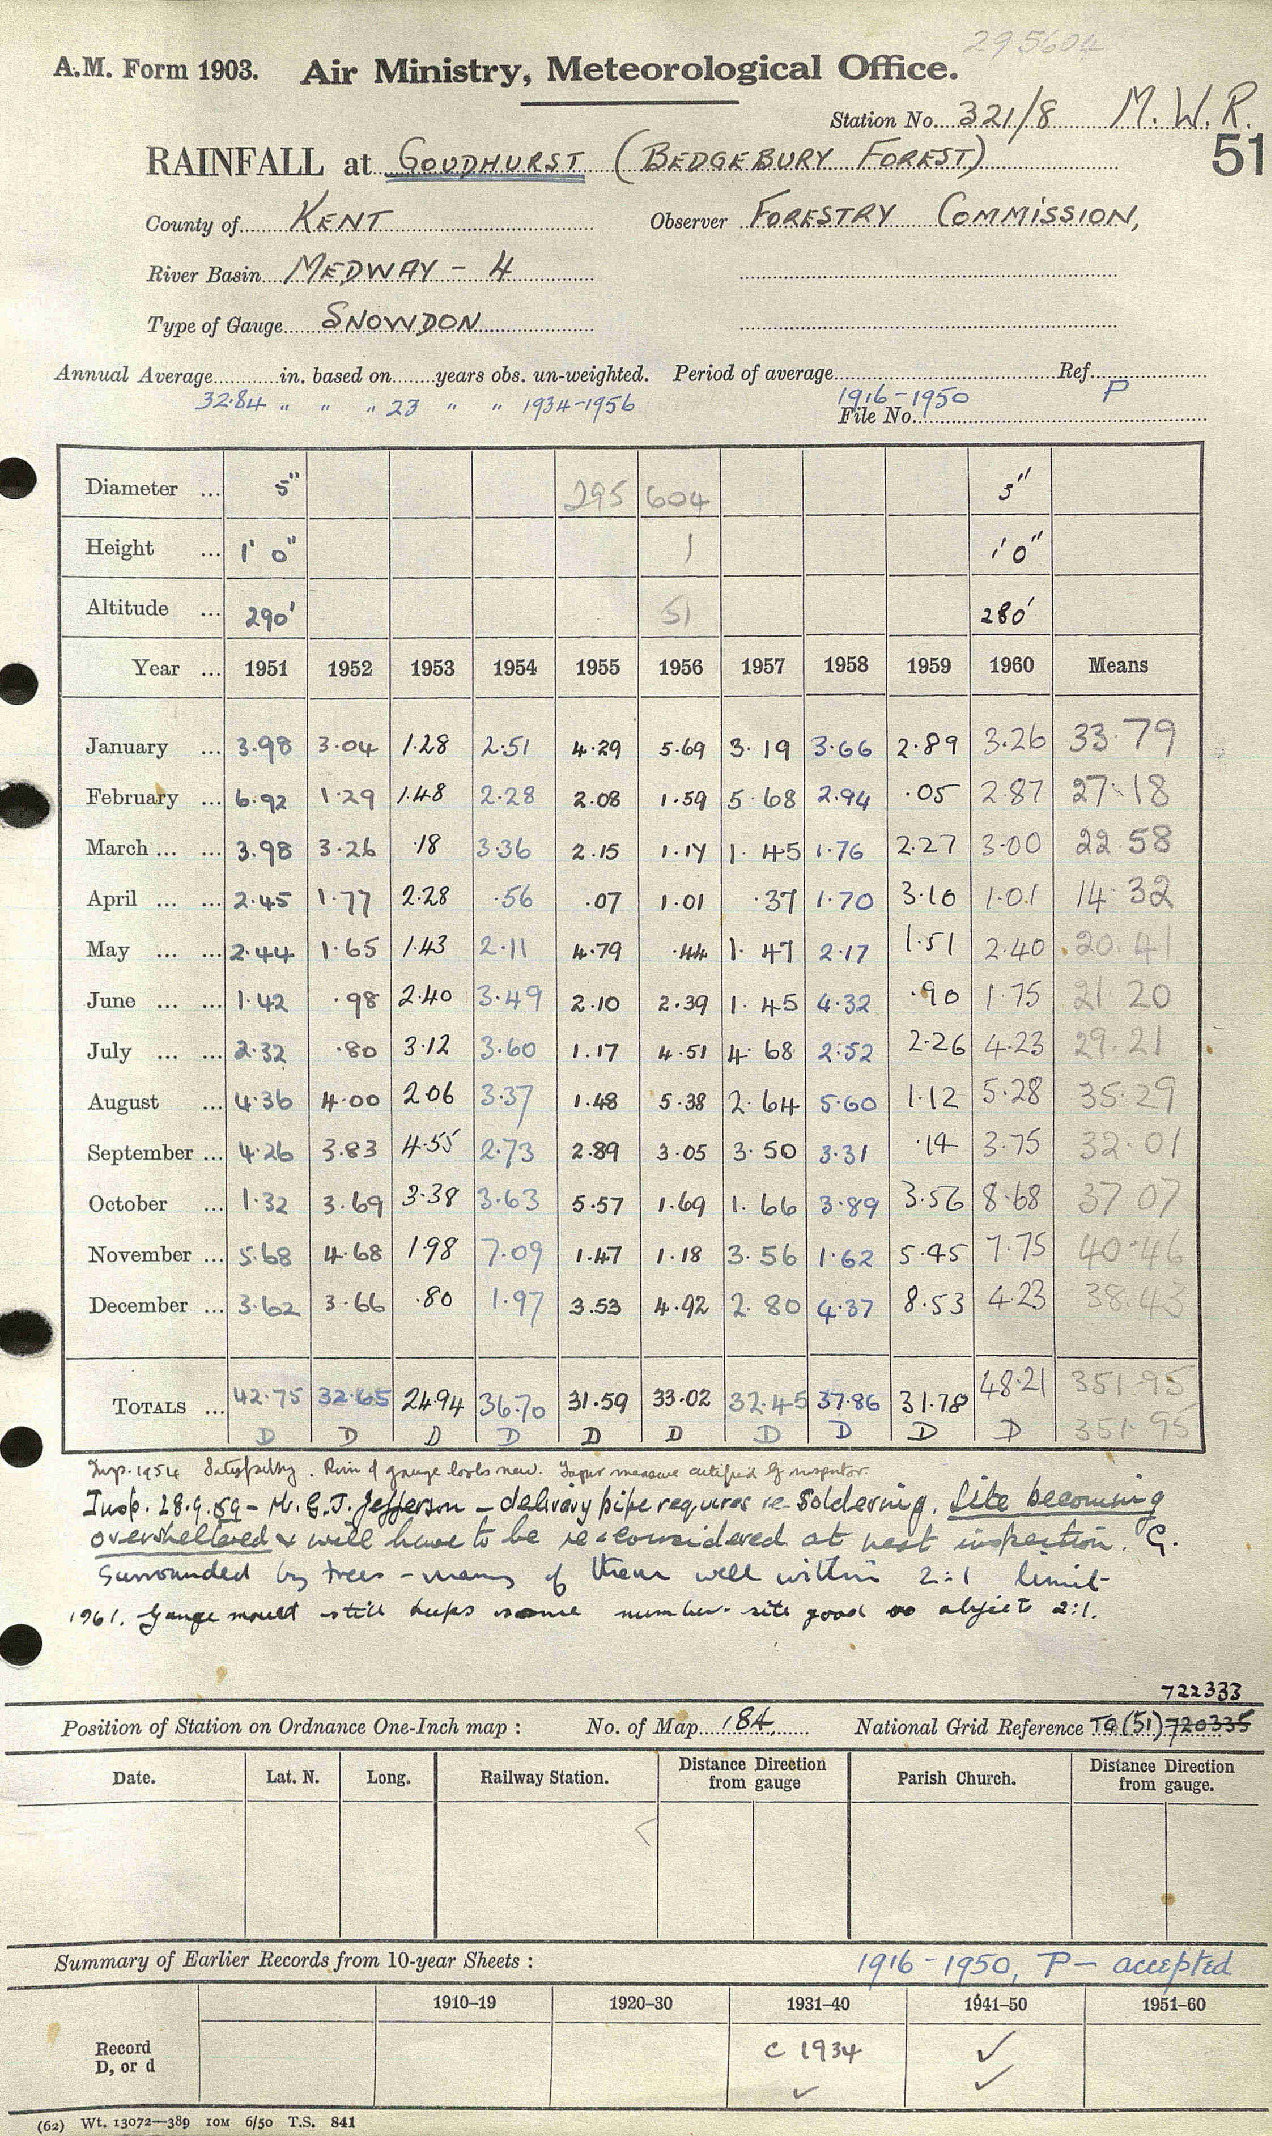 295604
A.M. Form 1903. Air Ministry, Meteorological Office.
Station No. 321/8 M.W.R.
51
RAINFALL at GOUDHURST (BEDGEBURY FOREST)
County of KENT Observer FORESTRY COMMISSION,
River Basin MEDWAY - 4
Type of Gauge SNOWDON
Annual Average in. based on years obs. un-weighted. Period of average Ref.
32.84 " " " 23 " " 1934-1956 1916-1950 P
File No.
Diameter ... 5" 295 604 5"
Height ... 1' 0" 1 1' 0"
Altitude ... 290' 51 280'
Year ... 1951 1952 1953 1954 1955 1956 1957 1958 1959 1960 Means
January ... 3.98 3.04 1.28 2.51 4.29 5.69 3.19 3.66 2.89 3.26 33.79
February ... 6.92 1.29 1.48 2.28 2.08 1.59 5.68 2.94 .05 2.87 27.18
March ... ... 3.98 3.26 .18 3.36 2.15 1.14 1.45 1.76 2.27 3.00 22.58
April ... ... 2.45 1.77 2.28 .56 .07 1.01 .37 1.70 3.10 1.01 14.32
May ... ... 2.44 1.65 1.43 2.11 4.79 .44 1.47 2.17 1.51 2.40 20.41
June ... ... 1.42 .98 2.40 3.49 2.10 2.39 1.45 4.32 .90 1.75 21.20
July ... ... 2.32 .80 3.12 3.60 1.17 4.51 4.68 2.52 2.26 4.23 29.21
August ... 4.36 4.00 2.06 3.37 1.48 5.38 2.64 5.60 1.12 5.28 35.29
September ... 4.26 3.83 4.55 2.73 2.89 3.05 3.50 3.31 .14 3.75 32.01
October ... 1.32 3.69 3.38 3.63 5.57 1.69 1.66 3.89 3.56 8.68 37.07
November ... 5.68 4.68 1.98 7.09 1.47 1.18 3.56 1.62 5.45 7.75 40.46
December ... 3.62 3.66 .80 1.97 3.53 4.92 2.80 4.37 8.53 4.23 38.43
TOTALS ... 42.75 32.65 24.94 36.70 31.59 33.02 32.45 37.86 31.78 48.21 351.95
D D D D D D D D D D 351.95
Insp. 1954 Satisfactory. Rim of gauge looks new. Taper measure certified by inspector.
Insp. 28.9.59 - Mr. G.J. Jefferson - delivery pipe requires re-soldering. Site becoming
oversheltered & will have to be re-considered at next inspection. G.
Surrounded by trees - many of them well within 2:1 limit
1961. Gauge still same number site good no object 2:1.
722333
Position of Station on Ordnance One-Inch map : No. of Map 184 National Grid Reference TQ(51) 720335
Date. Lat. N. Long. Railway Station. Distance Direction from gauge Parish Church. Distance Direction from gauge.
Summary of Earlier Records from 10-year Sheets : 1916-1950, P - accepted
1910–19 1920–30 1931–40 1941–50 1951–60
Record
D, or d
c 1934 ✓
✓ ✓
(62) Wt. 13072—389 10M 6/50 T.S. 841